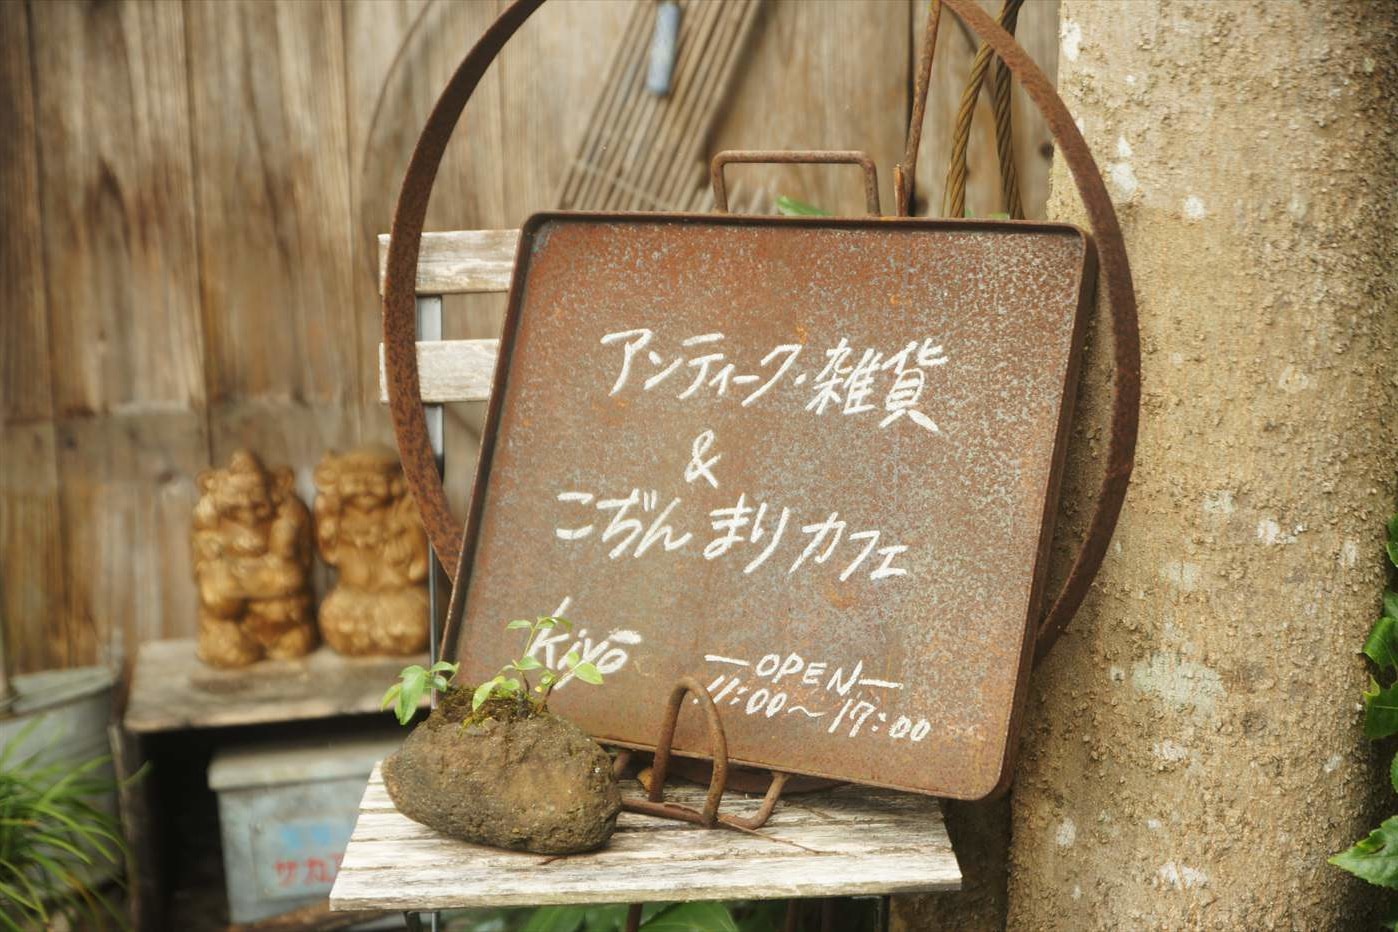 アンティーク・雑貨
&
こぢんまりカフェ
kiyō
OPEN
11:00～17:00
サカ